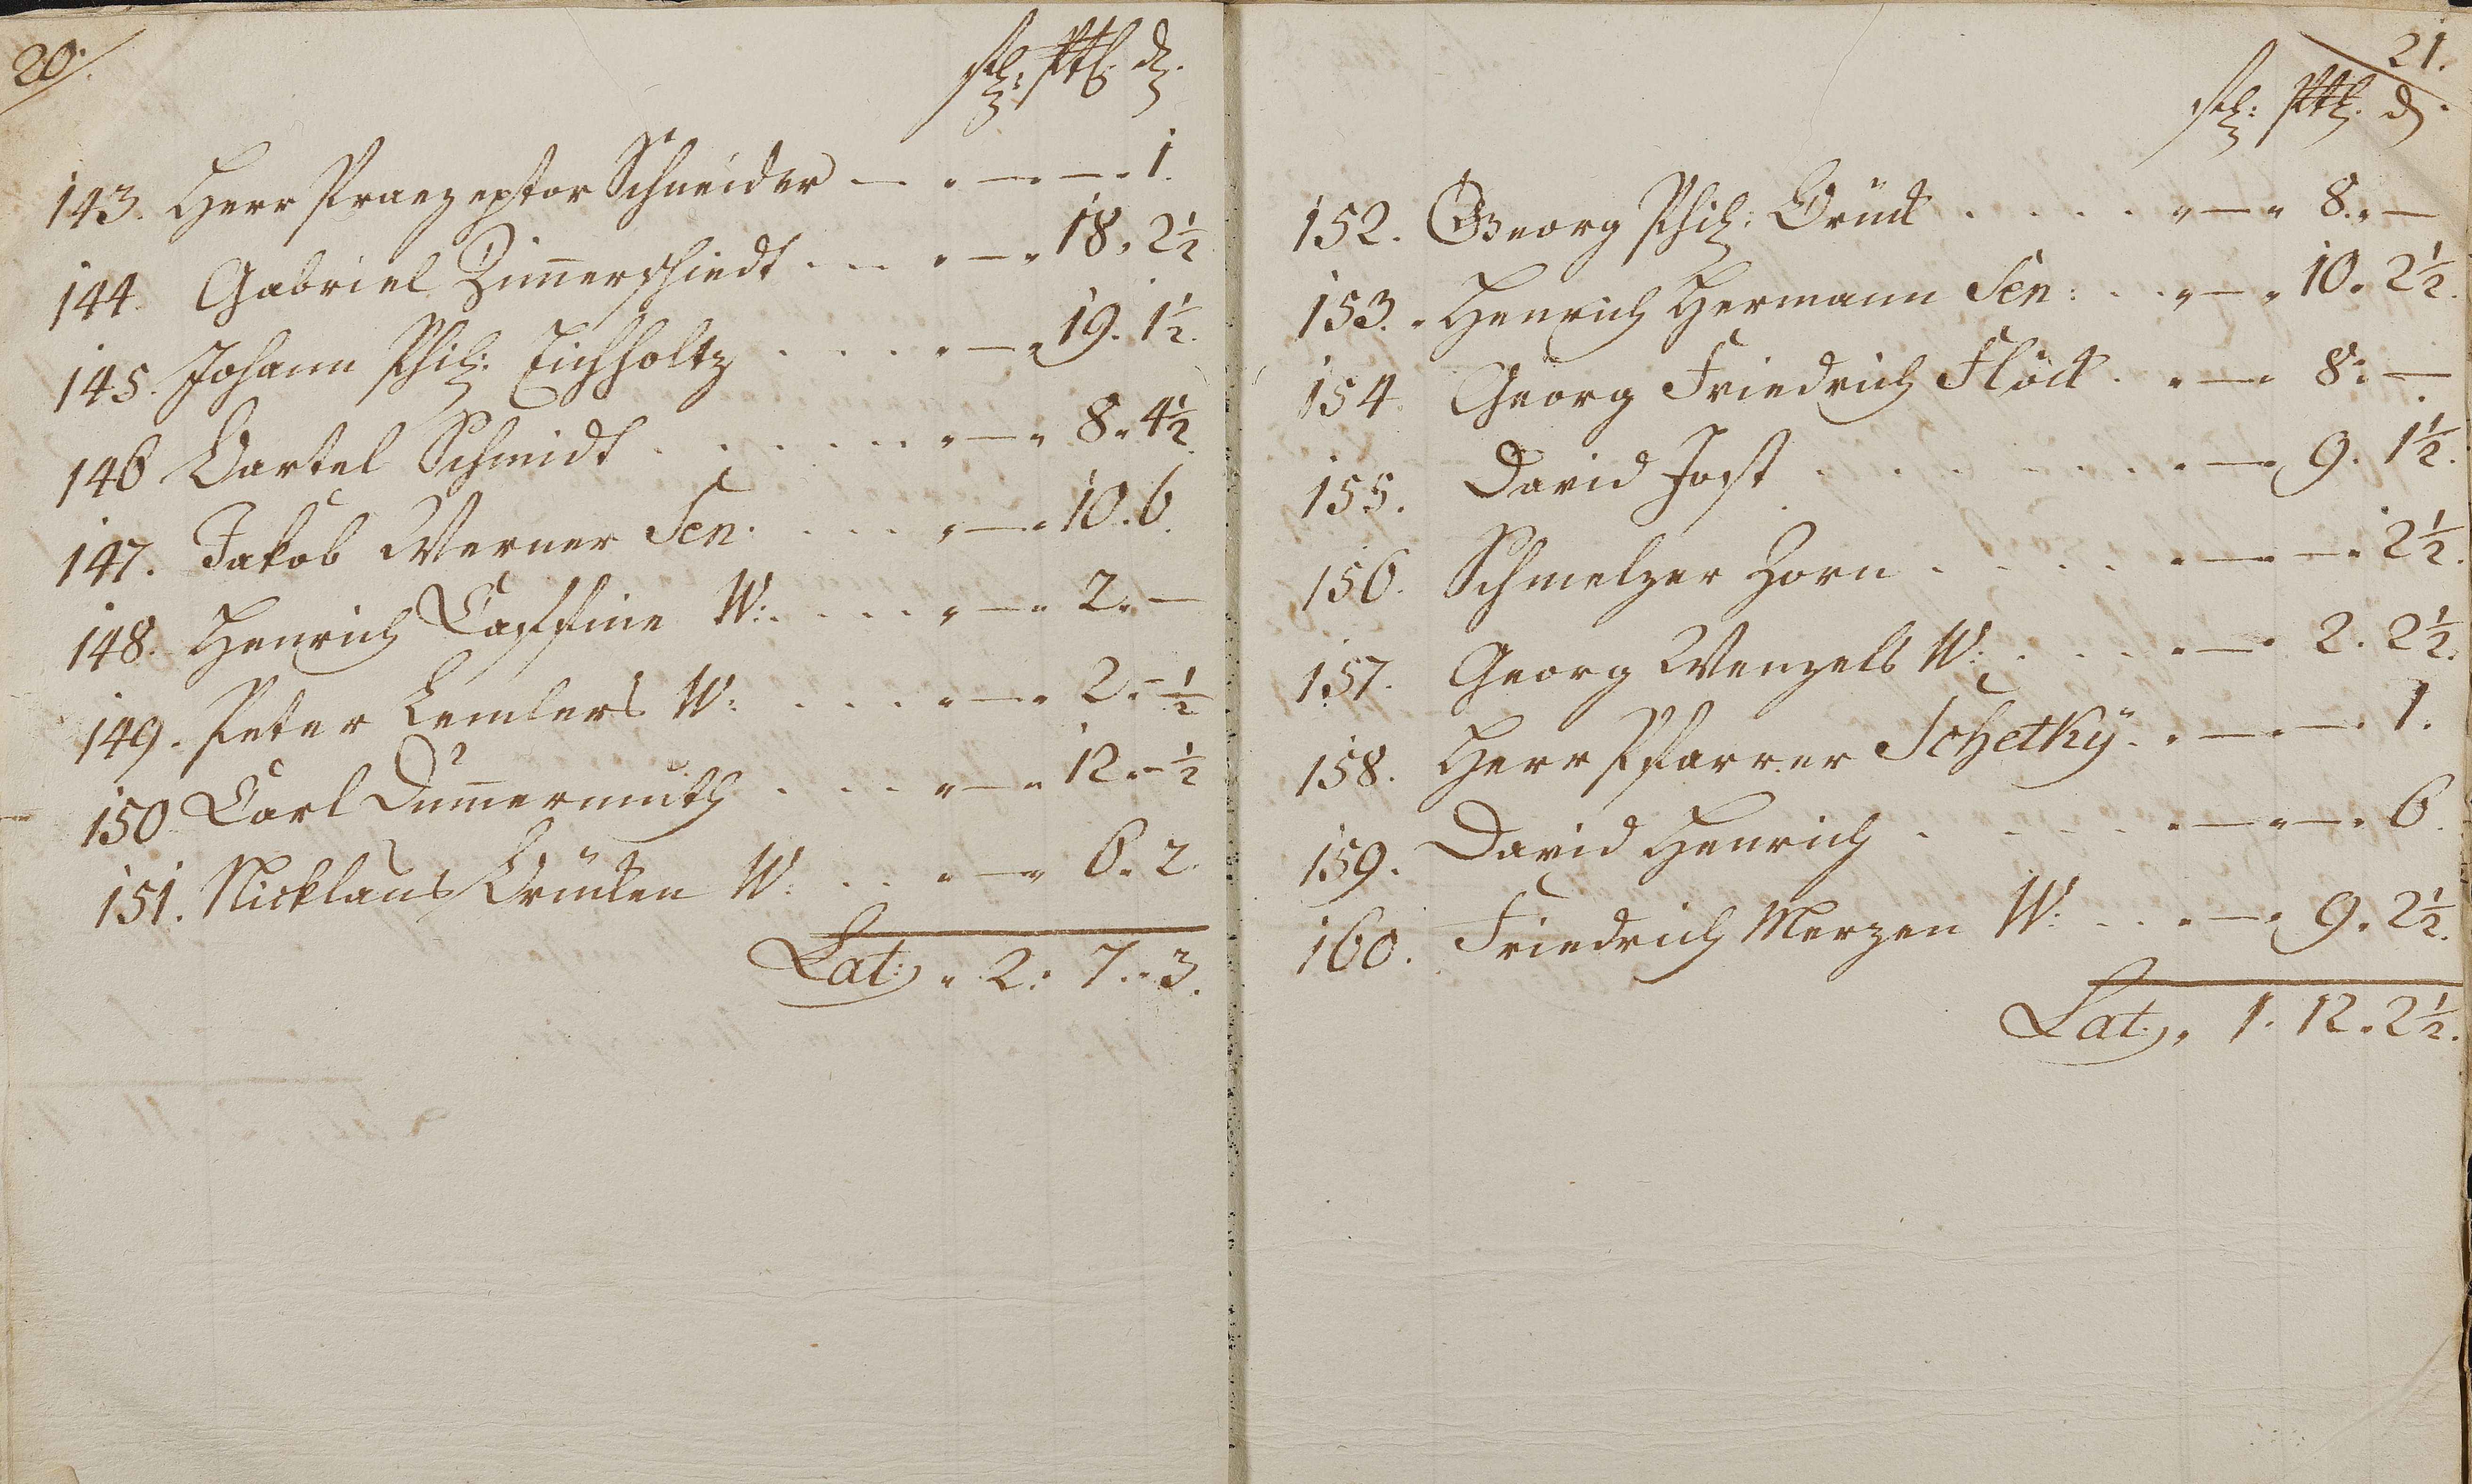 20.
143. Herr Praezeptor Schneider — . — . — . 1.
144. Gabriel Zim̅erschiedt . . . . — . 18. 2½
145. Johann Phil: Eichholtz . . . . — . 19. 1½.
146 Bartel Schmidt . . . . . . . — . 8. 4½.
147. Jakob Werner Sen. . . . . — . 10. 6.
148. Henrich W: . . . . — . 2. —
149. Peter Lemlers W: . . . . — . 2. – ½
150 Carl Dum̅ermuth . . . . — . 12. – ½
151. Nicklaus Brücken W: . . . — . 6. 2.
Lat: . 2. 7. 3.
21.
152. Georg Phil: Brück . . . . . — . 8. —
153. Henrich Hermann Sen: . . . — . 10. 2½.
154. Georg Friedrich Flöck . . — . 8. —
155. David Jost . . . . . . . — . 9. 1½.
156. Schmelzer Zorn . . . . . — . — . 2½.
157. Georg Wenzels W: . . . . — . 2. 2½.
158. Herr Pfarrer Schetkÿ . . — . — . 1.
159. David Henrich . . . . . — . — . 6.
160. Friedrich Merzen W: . . . — . 9. 2½.
Lat: . 1. 12. 2½.